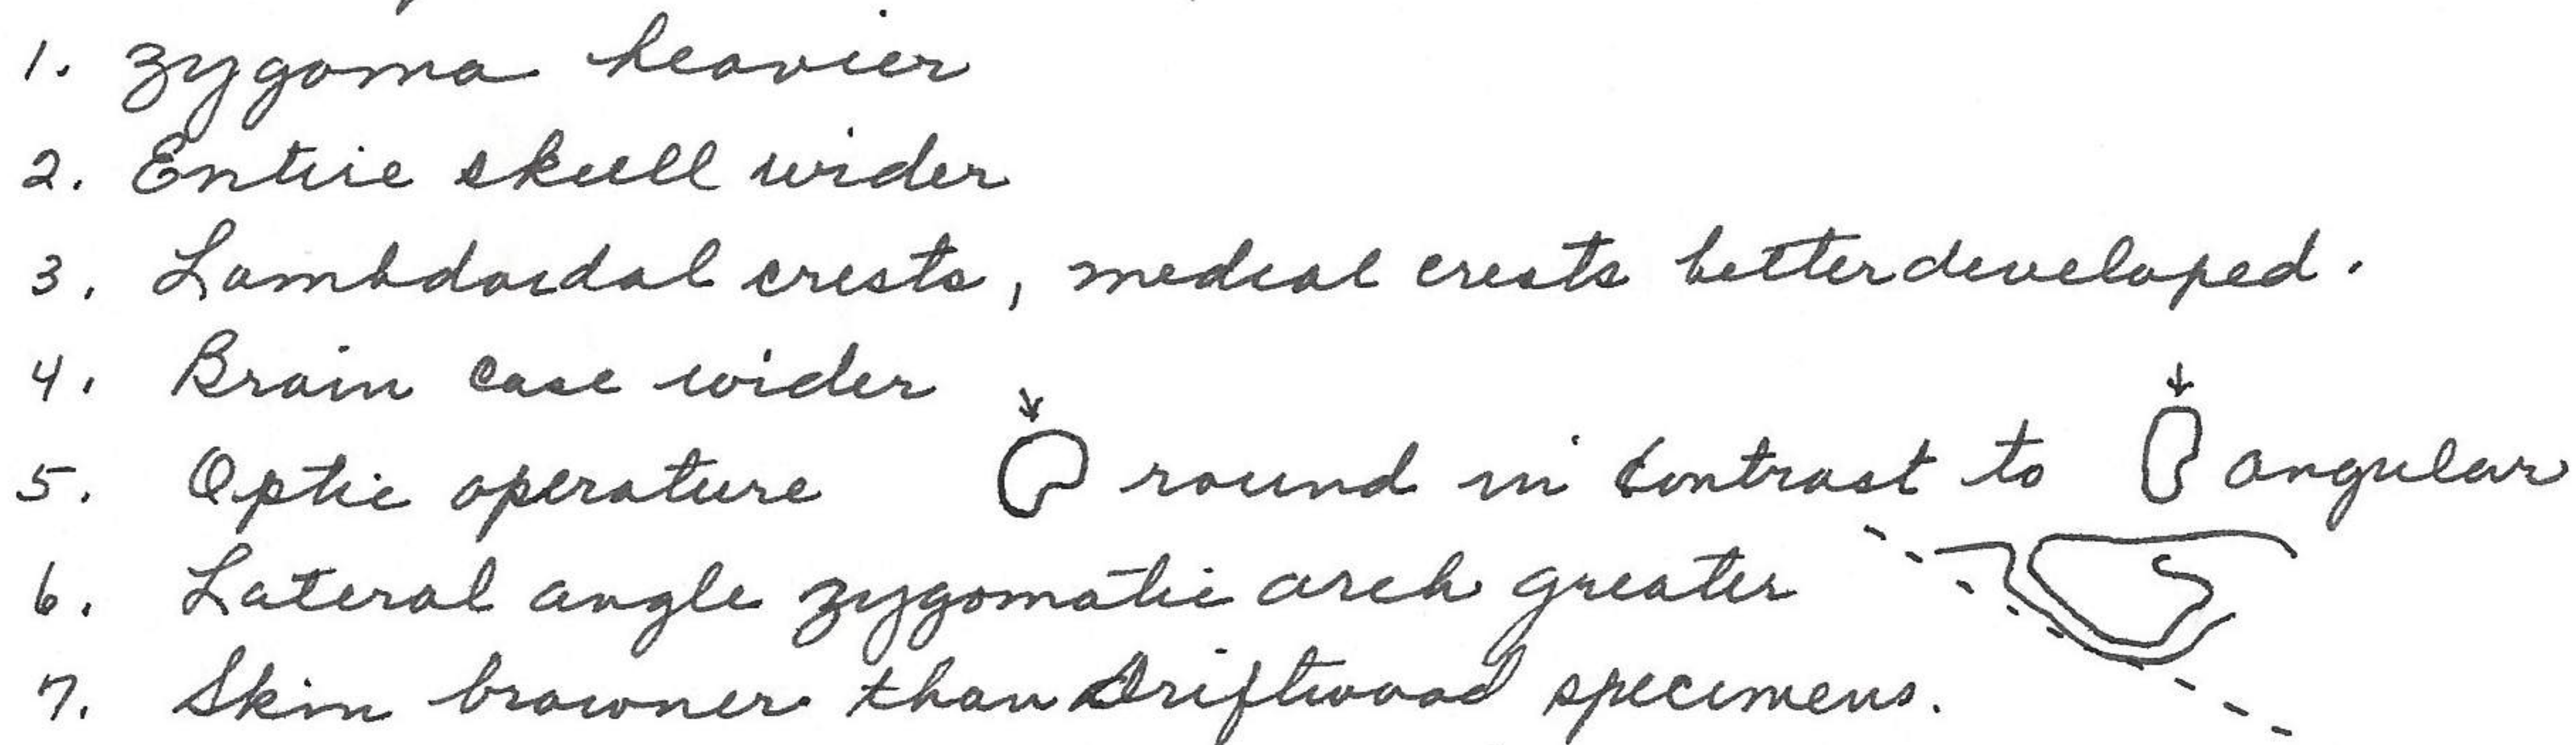 1. zygoma heavier
2. Entire skull wider
3. Lambdoidal crests, medial crests better developed.
4. Brain case wider
5. Optic operature round in contrast to angular
6. Lateral angle zygomatic arch greater
7. Skin browner than Driftwood specimens.